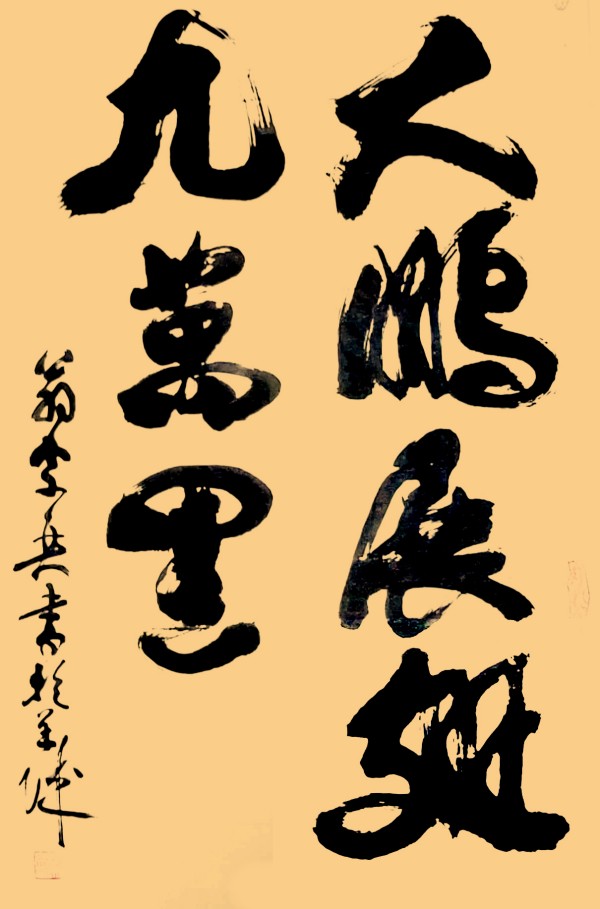 大鹏展翅
九萬里
翁李兵書於羊城